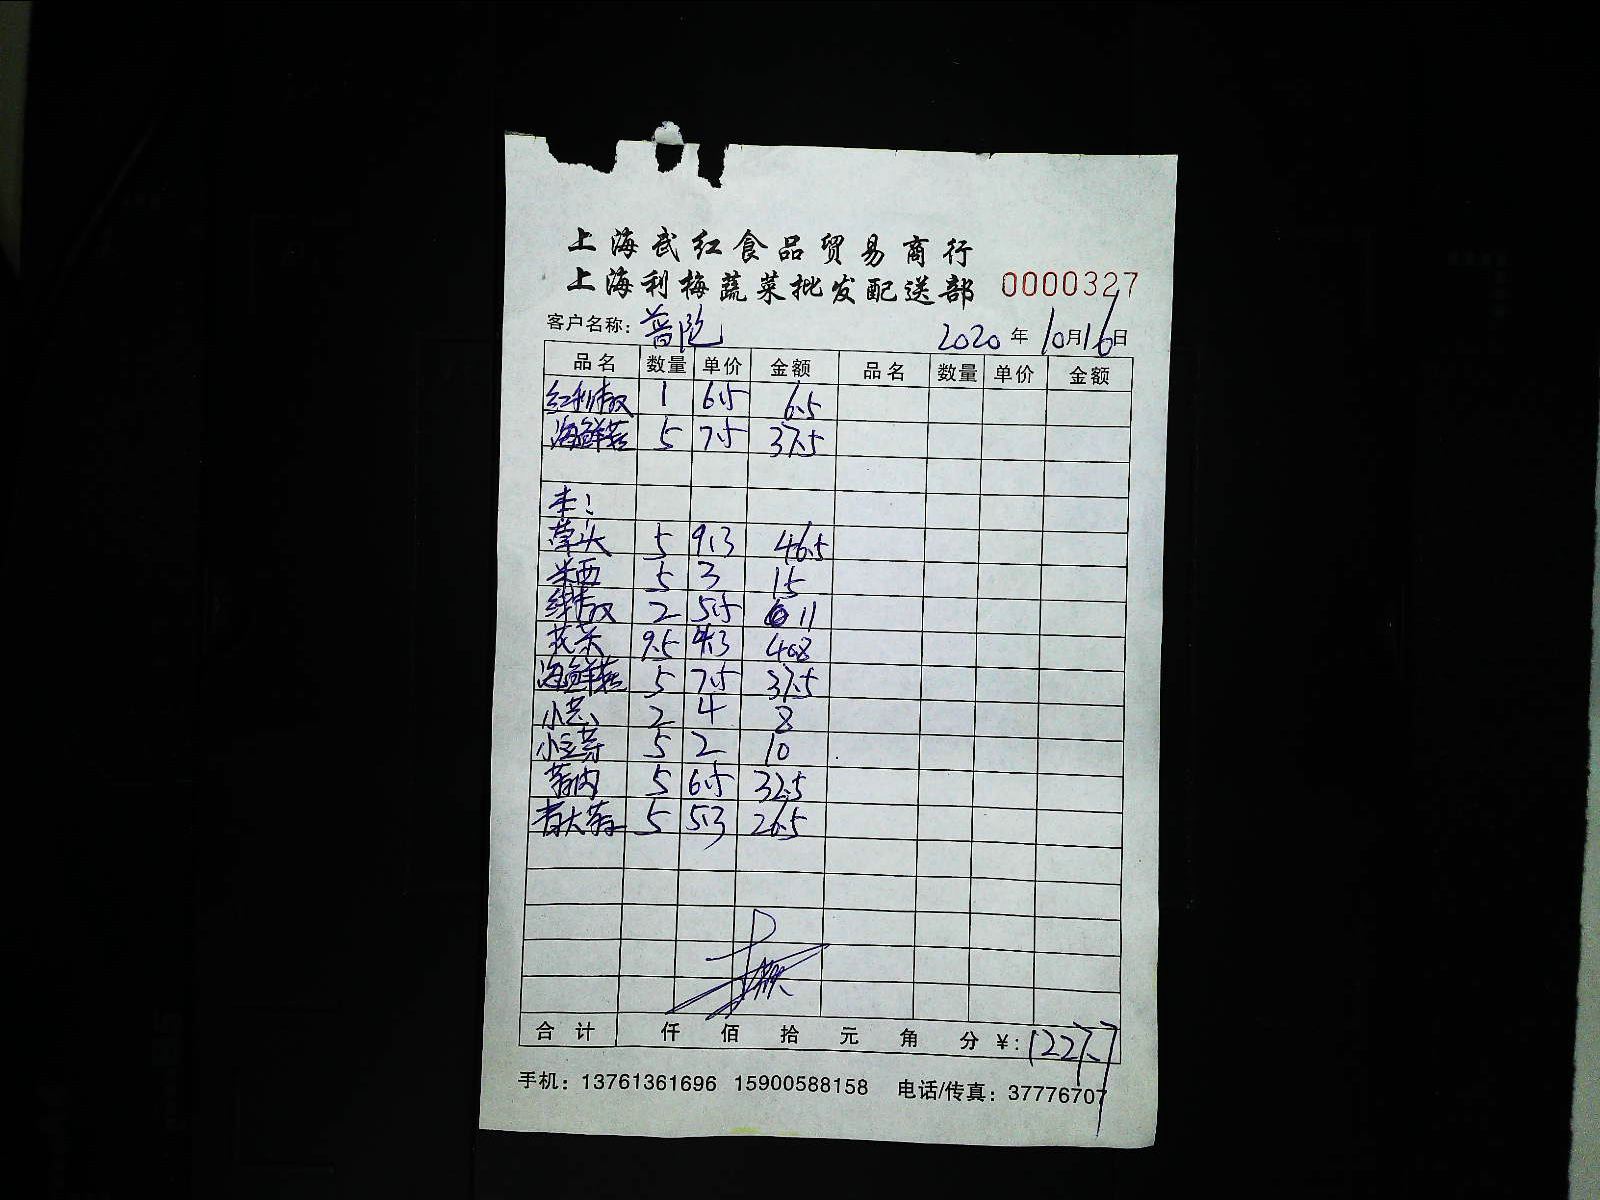 上海武红食品贸易商行
上海利梅蔬菜批发配送部 0000327
客户名称：普陀 2020年10月16日
品名 数量 单价 金额 品名 数量 单价 金额
红利椒 1 6.5 6.5
海鲜菇 5 7.5 37.5
丰：
草头 5 9.3 46.5
米西 5 3 15
绿椒 2 5.5 11
花菜 9.5 4.3 40.8
海鲜菇 5 7.5 37.5
小葱 2 4 8
小豆芽 5 2 10
5 6.5 32.5
5 5.3 26.5
合计 仟 佰 拾 元 角 分 ¥：1227.7
手机：13761361696 15900588158 电话/传真：37776707